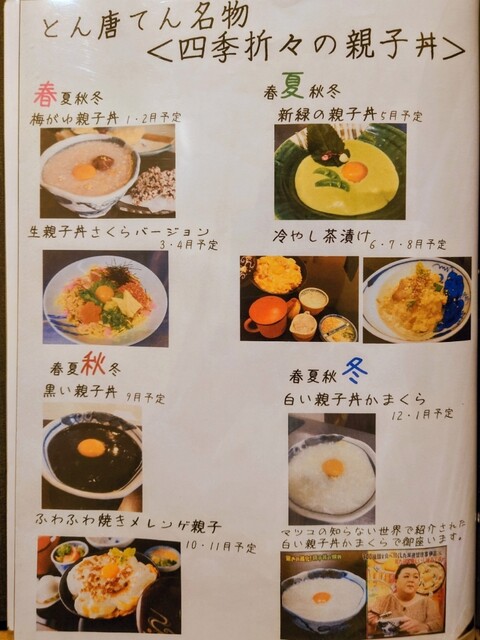 とん唐てん名物
<四季折々の親子丼>
春夏秋冬
梅がゆ親子丼 1・2月予定
生親子丼さくらバージョン
3・4月予定
春夏秋冬
新緑の親子丼 5月予定
冷やし茶漬け 6・7・8月予定
春夏秋冬
黒い親子丼 9月予定
ふわふわ焼きメレンゲ親子
10・11月予定
春夏秋冬
白い親子丼かまくら
12・1月予定
マツコの知らない世界で紹介された
白い親子丼かまくらで御座います。